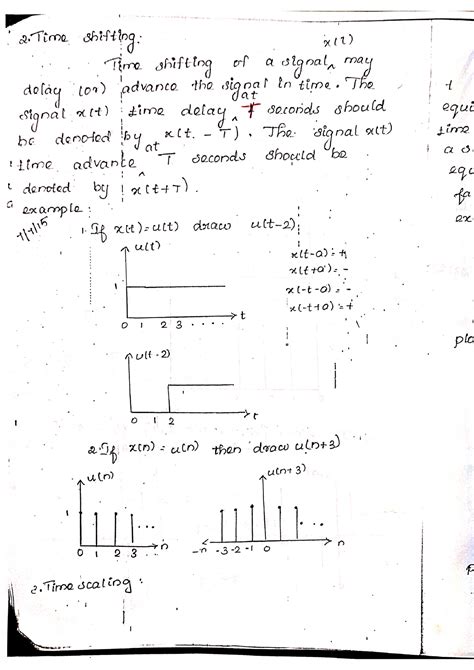 2. Time shifting:
x(t)
Time shifting of a signal ^ may
delay (or) advance the signal in time. The
at
signal x(t) time delay ^ T seconds should
be denoted by x(t - T). The signal x(t)
at
time advance ^ T seconds should be
denoted by x(t+T).
example:
7/7/15
1. If x(t)=u(t) draw u(t-2);
u(t)
x(t-0) = +
x(t+0) = -
x(-t-0) = -
x(-t+0) = +
1
0 1 2 3 ..... t
u(t-2)
1
0 1 2 t
2. If x(n) = u(n) then draw u(n+3)
u(n) u(n+3)
1 ... ...
0 1 2 3 ... n -n -3 -2 -1 0 n
2. Time scaling:
t
equi
time
a s
equ
fa
ex
pla